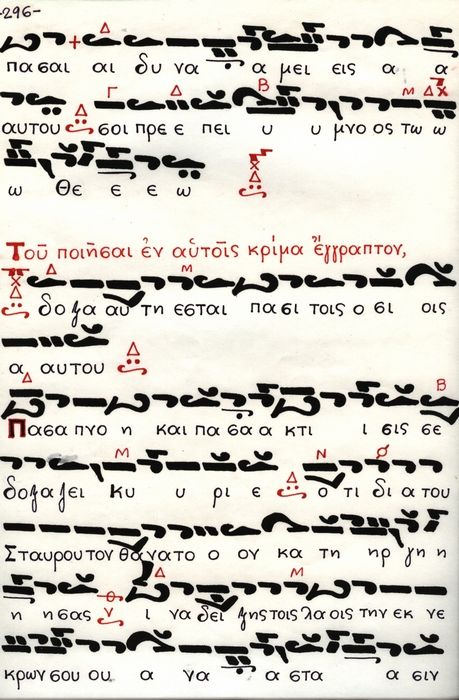 -296-
πασαι αι δυ να α μει εις α α
αυτου σοι πρε ε πει υ υ μνο ος τω ω
ω Θε ε ε ω
Τοῦ ποιῆσαι ἐν αὐτοῖς κρίμα ἔγγραπτον,
δο ξα αυ τη εσται πασι τοις ο σι οις
α αυτου
Πασα πνο η και πα σα α κτι ι σις σε
δοξαζει Κυ υ ρι ε ο τι δι α του
Σταυρου τον θα νατο ο ον κα τη ηρ γη η
η ησας ι να δει ξης τοις λα οις την εκ νε
κρων σου ου α να α στα α σιν